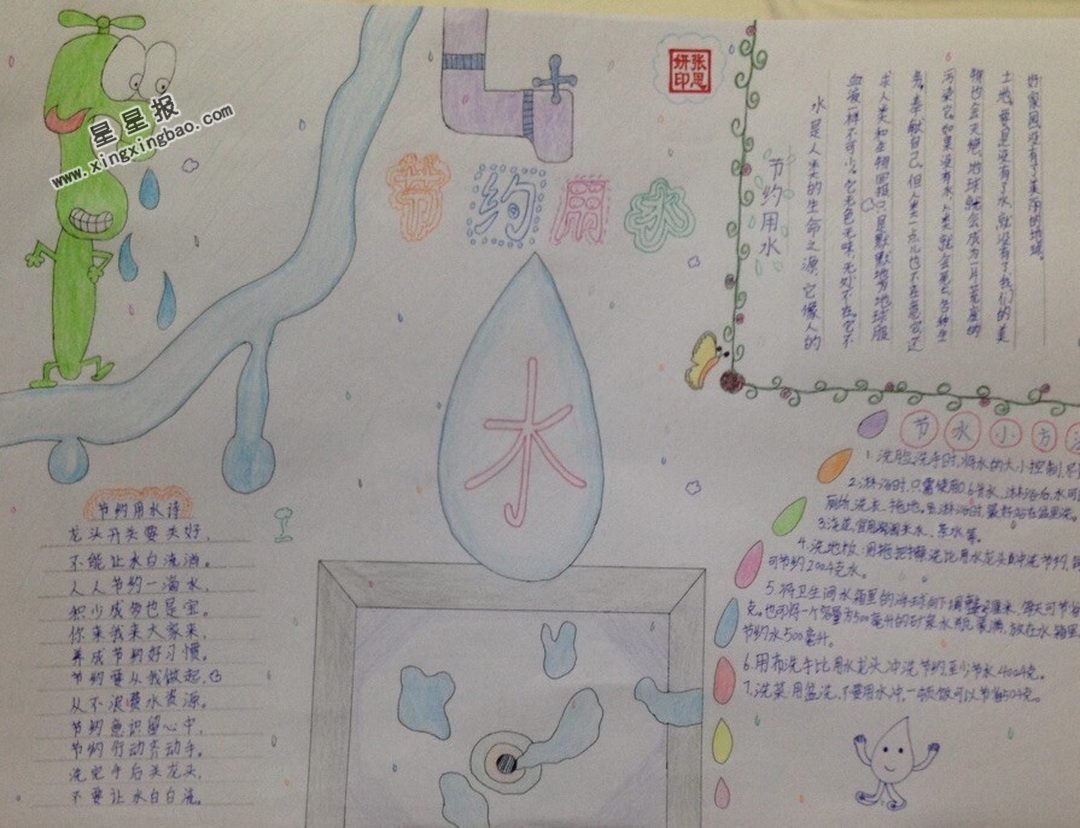 星星报
www.xingxingbao.com
张思妍印
节约用水
水
节约用水
水是人类的生命之源,它像人的
血液一样不可少。它无色无味,无处不在。它不
求人类和生物回报,只是默默地为地球服
务,奉献自己。但人类一点儿也不在意它,还
污染它。如果没有水,人类就会死亡,各种生
物也会灭绝,地球就会成为一片荒凉的
土地。要是没有了水,就没有了我们的美
好家园,没有了美丽的地球。
节约用水诗
龙头开关要关好,
不能让水白流淌。
人人节约一滴水,
积少成多也是宝。
你来我来大家来,
养成节约好习惯。
节约要从我做起,
从不浪费水资源。
节约意识留心中,
节约行动齐动手。
洗完手后关龙头,
不要让水白白流。
节水小方
1.洗脸、洗手时,将水的大小控制,尽
2.淋浴时,只需使用 水,淋浴后,水可
厕所、洗衣、拖地。且淋浴时最好站在盆里洗。
3.浇花宜用淘米水、茶水等。
4.洗地板:用拖把擦洗比用水龙头直冲洗节约,
可节约200千克水。
5.将卫生间水箱里的浮球向下调整2厘米,每天可节
克。也可将一个 500毫升的 水瓶装满,放在水箱里
节约水500毫升。
6.用布洗手比用水龙头冲洗节约,至少节水400千克。
7.洗菜:用盆洗,不要用水冲,一 饭可以节省50千克。